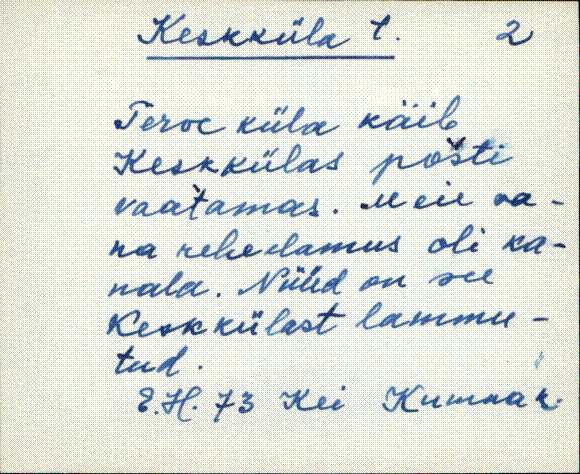 Keskküla t. 2
Teroc küla käib
Keskkülas pošti
vaatamas. Meie va-
na reheelamus oli ka-
nala. Nüüd on see
Keskkülast lammu-
tud.
E.H. 73 Kei Kumna k.